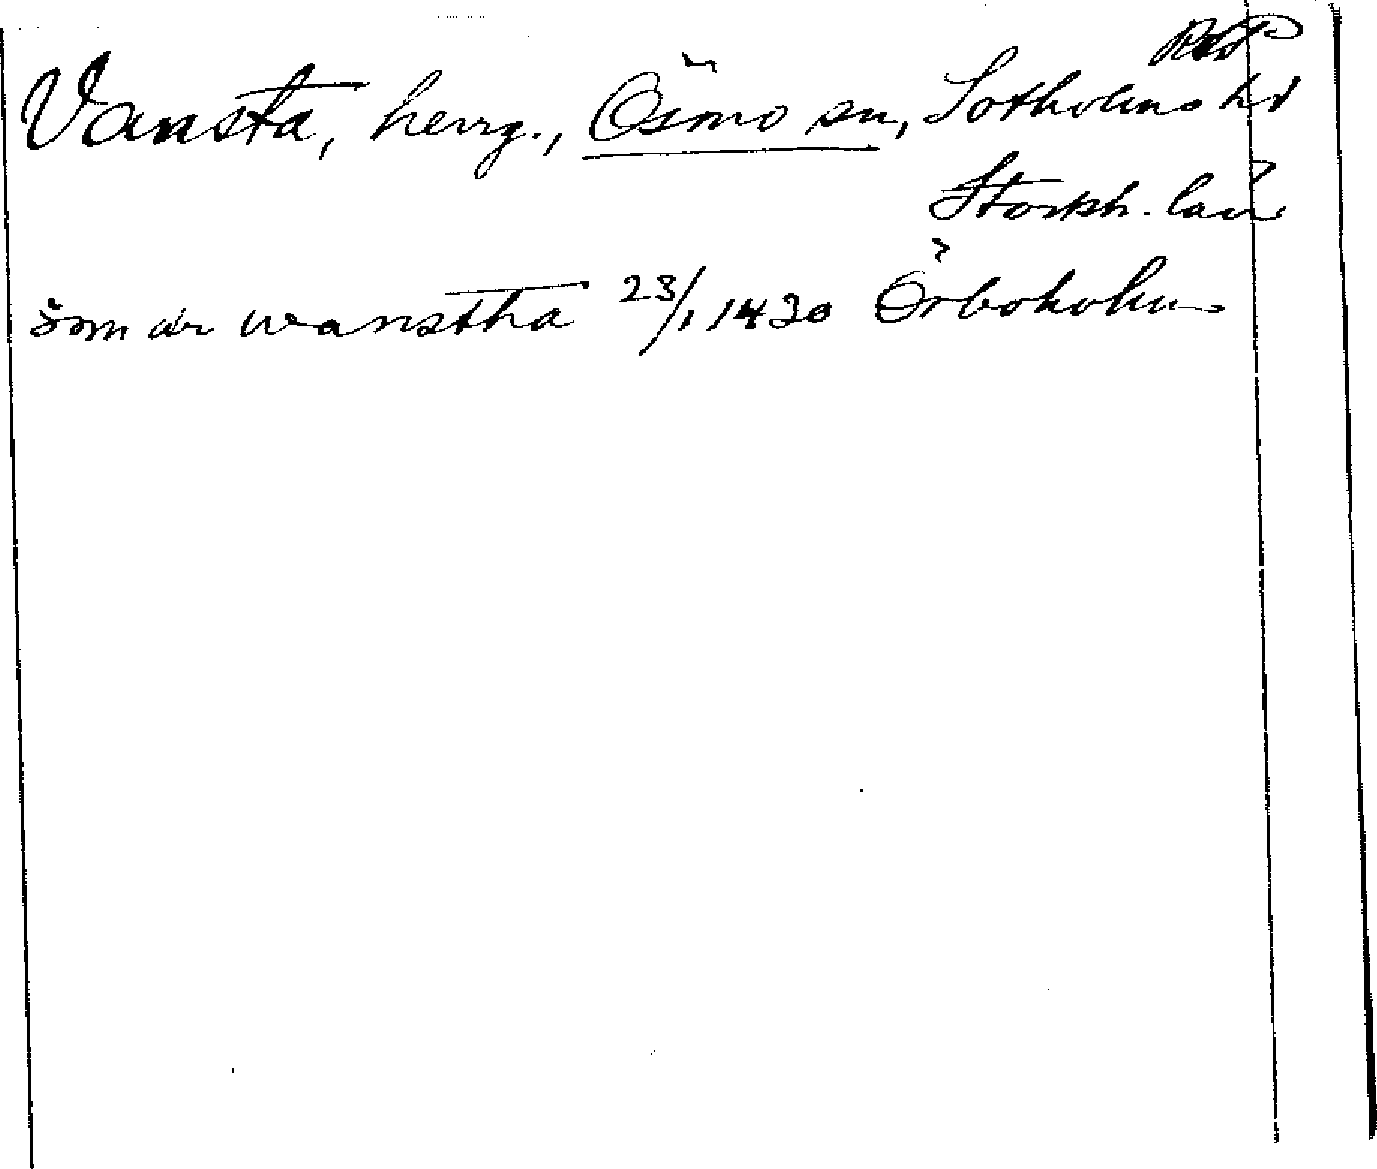 Vansta, herrg., Ösmo sn, Sotholms hd
Stockh. län
som är wanstha 23/1 1430 Örboholm